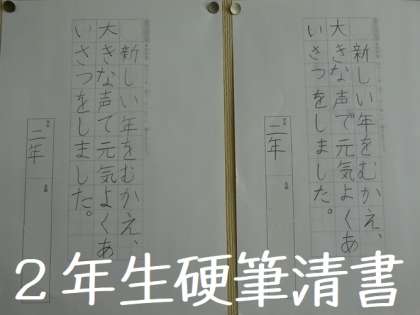 新しい年をむかえ、
大きな声で元気よくあ
いさつをしました。
二年
新しい年をむかえ、
大きな声で元気よくあ
いさつをしました。
二年
２年生硬筆清書